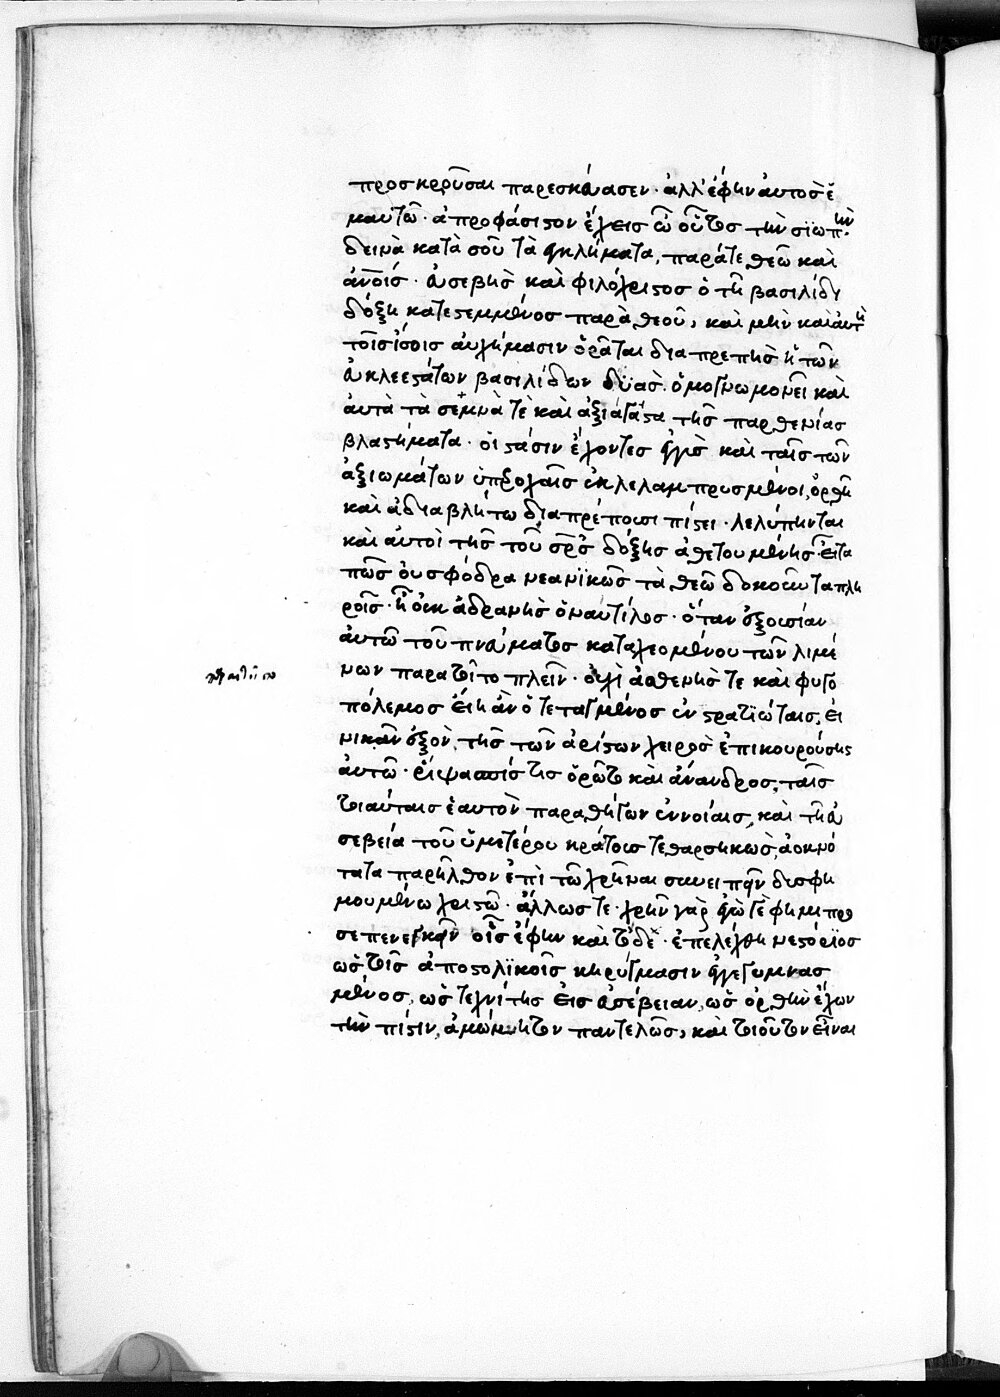 προσκροῦσαι παρεσκεύασεν· ἀλλ' ἔφην αὐτὸς ἐ
μαυτῶ· ἀπροφάσιστον ἔχεις ὦ οὗτος τὴν σϊωπήν
δεινὰ κατὰ σοῦ τὰ ἐγκλήματα, παρά τε θεῶ καὶ
ἀνοις· εὐσεβὴς καὶ φιλόχριστος ὁ τῆ βασιλίδι
δόξη κατεστεμμένος παρὰ θεοῦ, καὶ μὴν καὶ αὐτὴ
τοῖς ἴσοις αὐχήμασιν ὁρᾶται διαπρεπὴς ἡ τῶν
εὐκλεεστάτων βασιλίδων δϋάς· ὁμογνωμονεῖ καὶ
αὐτὰ τὰ σεμνά τε καὶ ἀξιάγαστα τῆς παρθενίας
βλαστήματα· οἱ στάσιν ἔχοντες ἐγγὺς καὶ ταῖς τῶν
ἀξιωμάτων ὑπεροχαῖς ἐκλελαμπρυσμένοι, ὀρθῆ
καὶ ἀδιαβλήτω διαπρέπουσι πίστει· λελύπηνται
καὶ αὐτοὶ τῆς τοῦ σρς δόξης ἀθετουμένης· εἶτα
πῶς οὐ σφόδρα νεανϊκῶς τὰ θεῶ δοκοῦντα πλη
ροῖς· ἢ οὐκ ἀδρανὴς ὁ ναυτίλος· ὅταν ἐξουσίαν
αὐτῶ τοῦ πνεύματος καταχεομένου τῶν λιμέ
νων παραιτοῖτο πλεῖν· οὐχὶ ἀσθενής τε καὶ φυγο
πόλεμος εἴη ἂν ὁ τεταγμένος ἐν στρατϊώταις, εἰ
νικᾶν ἐξὸν, τῆς τῶν ἀρίστων χειρὸς ἐπικουρούσης
αὐτῶ· ῥίψασπίς τις ὁρῶτο καὶ ἄνανδρος, ταῖς
τοιαύταις ἑαυτὸν παραθήγων ἐννοίαις, καὶ τῆ εὐ
σεβεία τοῦ ὑμετέρου κράτους τεθαρσηκὼς, ἀοκνό
τατα παρῆλθον ἐπὶ τῶ χρῆναι συνειπεῖν δυσφη
μουμένω χριστῶ· ἄλλως τε· χρῆν γὰρ ἐγώ γέ φημι προ
σεπενεγκεῖν οἷς ἔφην καὶ τόδε· ἐπελέγθη νεστόρϊος
ὡς τοῖς ἀποστολϊκοῖς κηρύγμασιν ἐγγεγυμνασ
μένος, ὡς τεχνίτης εἰς εὐσέβειαν, ὡς ὀρθὴν ἔχων
τὴν πίστιν, ἀμώμητον παντελῶς, καὶ τοιοῦτον εἶναι